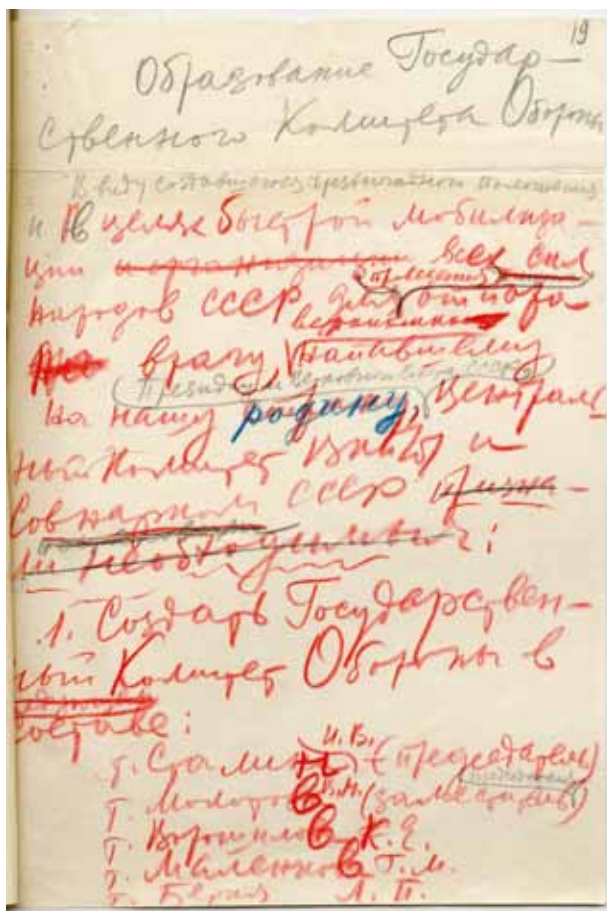 19
Образование Государ-
ственного Комитета Обороны
В виду создавшегося чрезвычайного положения
и В целях быстрой мобилиза-
ции и организации всех сил
народов СССР для отпора
врагу, напавшему
Президиум Верховного Совета СССР
на нашу родину, Централь-
ный Комитет ВКП(б) и
Совнарком СССР призна-
ли необходимым:
1. Создать Государствен-
ный Комитет Обороны в
составе:
И. В.
т. Сталин (председатель)
т. Молотов В. М. (заместитель)
т. Ворошилов К. Е.
т. Маленков Г. М.
т. Берия Л. П.